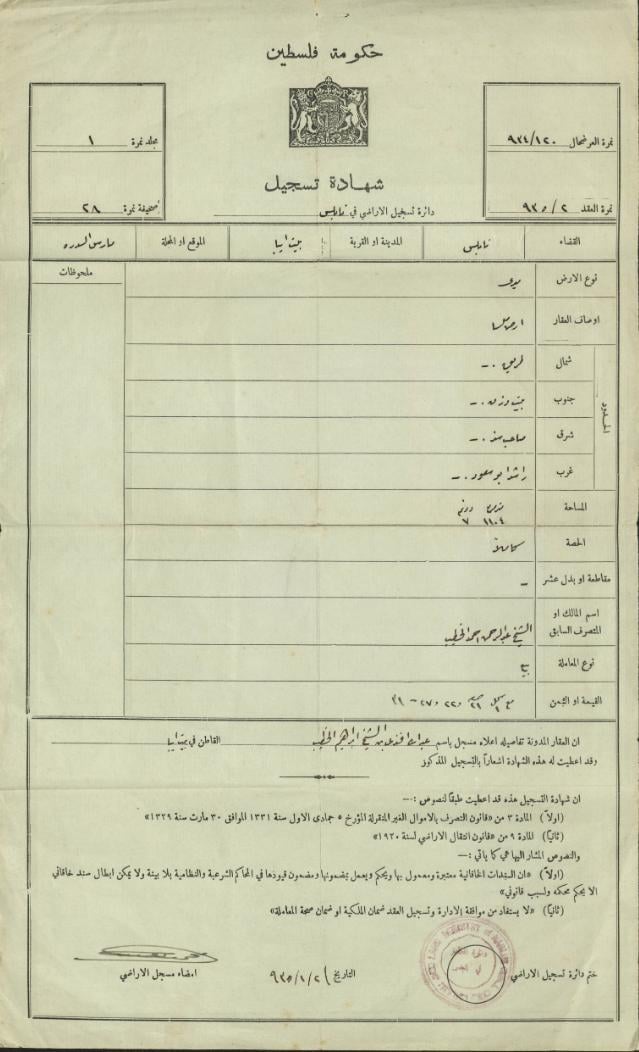 حكومة فلسطين
نمرة العرضحال ٩٣٤/١٢٠
مجلد نمرة ١
شهادة تسجيل
نمرة العقد ٩٣٥/٢
دائرة تسجيل الاراضي في نابلس
صحيفة نمرة ٢٨
القضاء نابلس المدينة او القرية بيت ايبا الموقع او المحلة مارس السدره
ملحوظات
نوع الارض ميري
اوصاف العقار ارض
الحدود
شمال طريق .-
جنوب .-
شرق صاحب .-
غرب راشد ابو سعود .-
المساحة
دونم
٧ ١١٠٤
الحصة كاملاً
مقاطعة او بدل عشر -
اسم المالك او
المتصرف السابق الشيخ عبد الرحمن احمد الخطيب
نوع المعاملة بيع
القيمة او الثمن
ان العقار المدونة تفاصيله اعلاه مسجل باسم عبدالله افندي ابن الشيخ ابراهيم الخطيب القاطن في بيت ايبا
وقد اعطيت له هذه الشهادة اشعاراً بالتسجيل المذكور
ان شهادة التسجيل هذه قد اعطيت طبقاً لنصوص :—
(اولاً) المادة ٣ من «قانون التصرف بالاموال الغير المنقولة المؤرخ ٥ جمادى الاول سنة ١٣٣١ الموافق ٣٠ مارت سنة ١٣٢٩»
(ثانياً) المادة ٩ من «قانون انتقال الاراضي لسنة ١٩٢٠»
والنصوص المشار اليها هي كما يأتي :—
(اولاً) «ان السندات الخاقانية معتبرة ومعمول بها ويحكم ويعمل بمضمونها ومضمون قيودها في المحاكم الشرعية والنظامية بلا بينة ولا يمكن ابطال سند خاقاني
الا بحكم محكمه ولسبب قانوني»
(ثانياً) «لا يستفاد من موافقة الادارة وتسجيل العقد ضمان الملكية او ضمان صحة المعاملة»
ختم دائرة تسجيل الاراضي
التاريخ ٩٣٥/١/٢
امضاء مسجل الاراضي